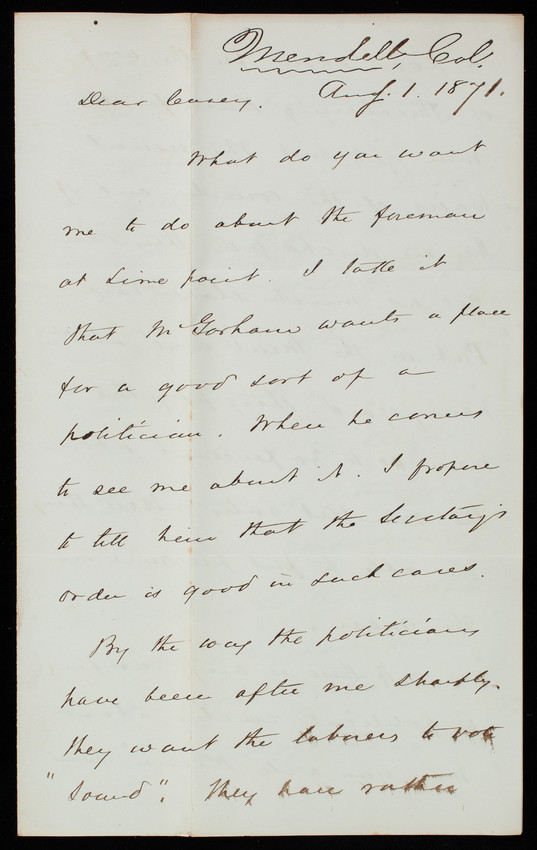 Mendell, Col.
Aug. 1. 1871.
Dear Casey.
What do you want
me to do about the foreman
at Lime point. I take it
that Mr Gorham wants a place
for a good sort of a
politician. When he comes
to see me about it. I propose
to tell him that the Secretary's
order is good in such cases.
By the way the politicians
have been after me sharply.
They want the laborers to vote
"Sound". They have rather